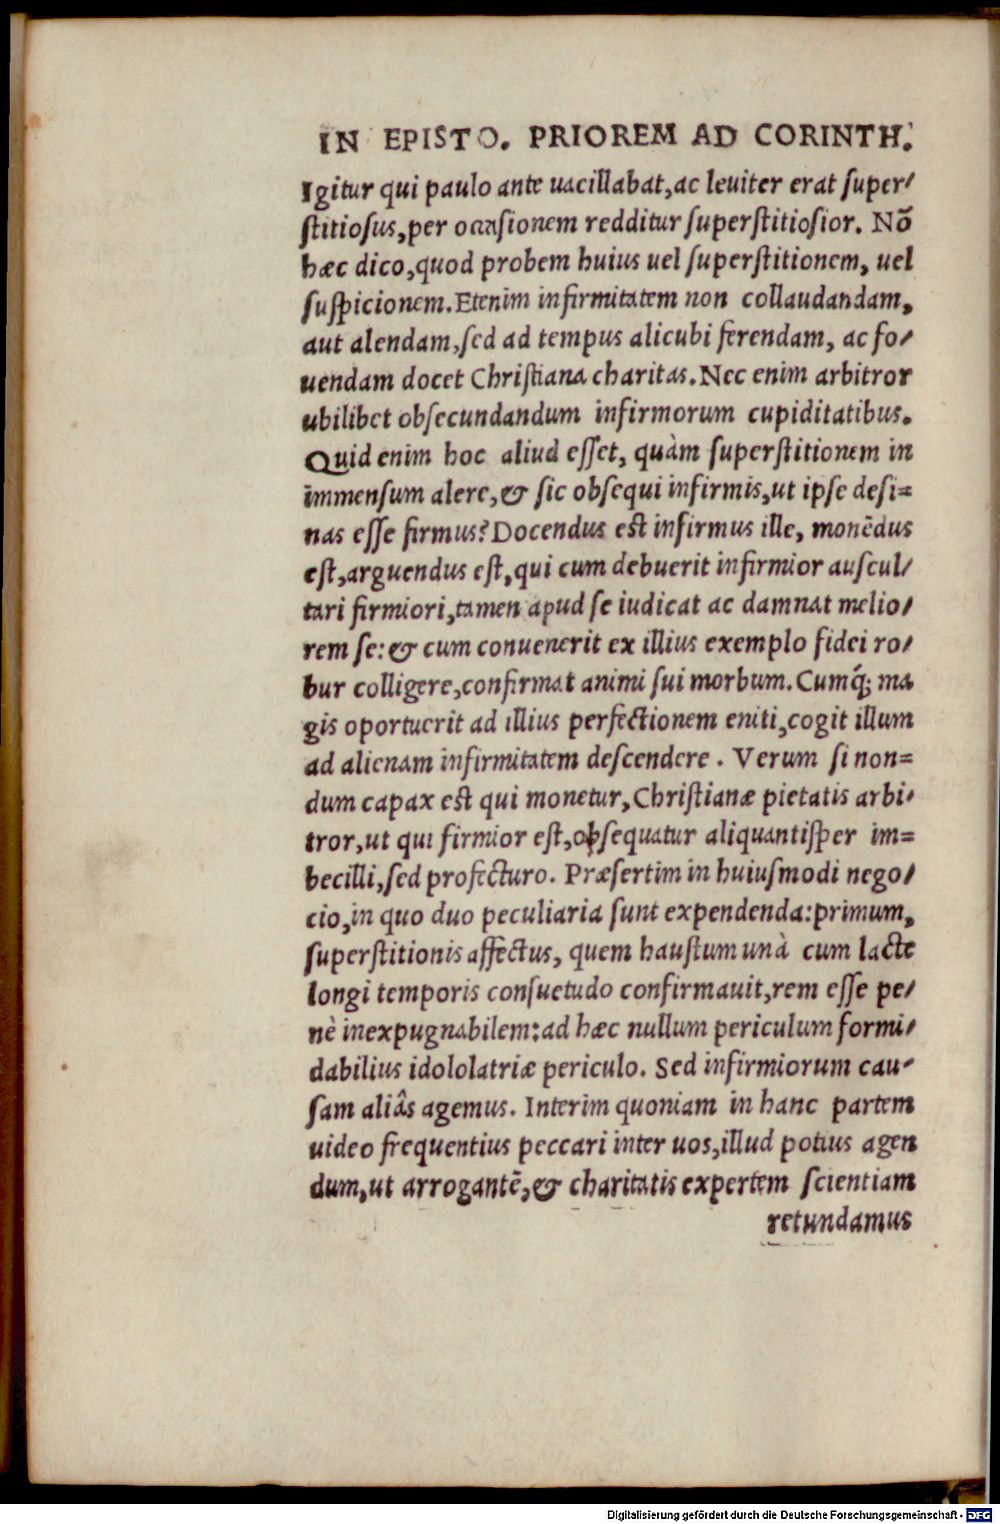 IN EPISTO. PRIOREM AD CORINTH.
Igitur qui paulo ante uacillabat, ac leuiter erat super/
stitiosus, per occasionem redditur superstitiosior. Nō
hæc dico, quod probem huius uel superstitionem, uel
suspicionem. Etenim infirmitatem non collaudandam,
aut alendam, sed ad tempus alicubi ferendam, ac fo/
uendam docet Christiana charitas. Nec enim arbitror
ubilibet obsecundandum infirmorum cupiditatibus.
Quid enim hoc aliud esset, quàm superstitionem in
immensum alere, & sic obsequi infirmis, ut ipse desi=
nas esse firmus? Docendus est infirmus ille, monēdus
est, arguendus est, qui cum debuerit infirmior auscul/
tari firmiori, tamen apud se iudicat ac damnat melio/
rem se: & cum conuenerit ex illius exemplo fidei ro/
bur colligere, confirmat animi sui morbum. Cumq́; ma
gis oportuerit ad illius perfectionem eniti, cogit illum
ad alienam infirmitatem descendere. Verum si non=
dum capax est qui monetur, Christianæ pietatis arbi/
tror, ut qui firmior est, obsequatur aliquantisper im=
becilli, sed profecturo. Præsertim in huiusmodi nego/
cio, in quo duo peculiaria sunt expendenda: primum,
superstitionis affectus, quem haustum unà cum lacte
longi temporis consuetudo confirmauit, rem esse pe/
nè inexpugnabilem: ad hæc nullum periculum formi/
dabilius idololatriæ periculo. Sed infirmiorum cau/
sam aliâs agemus. Interim quoniam in hanc partem
uideo frequentius peccari inter uos, illud potius agen
dum, ut arrogantē, & charitatis expertem scientiam
retundamus
Digitalisierung gefördert durch die Deutsche Forschungsgemeinschaft - DFG